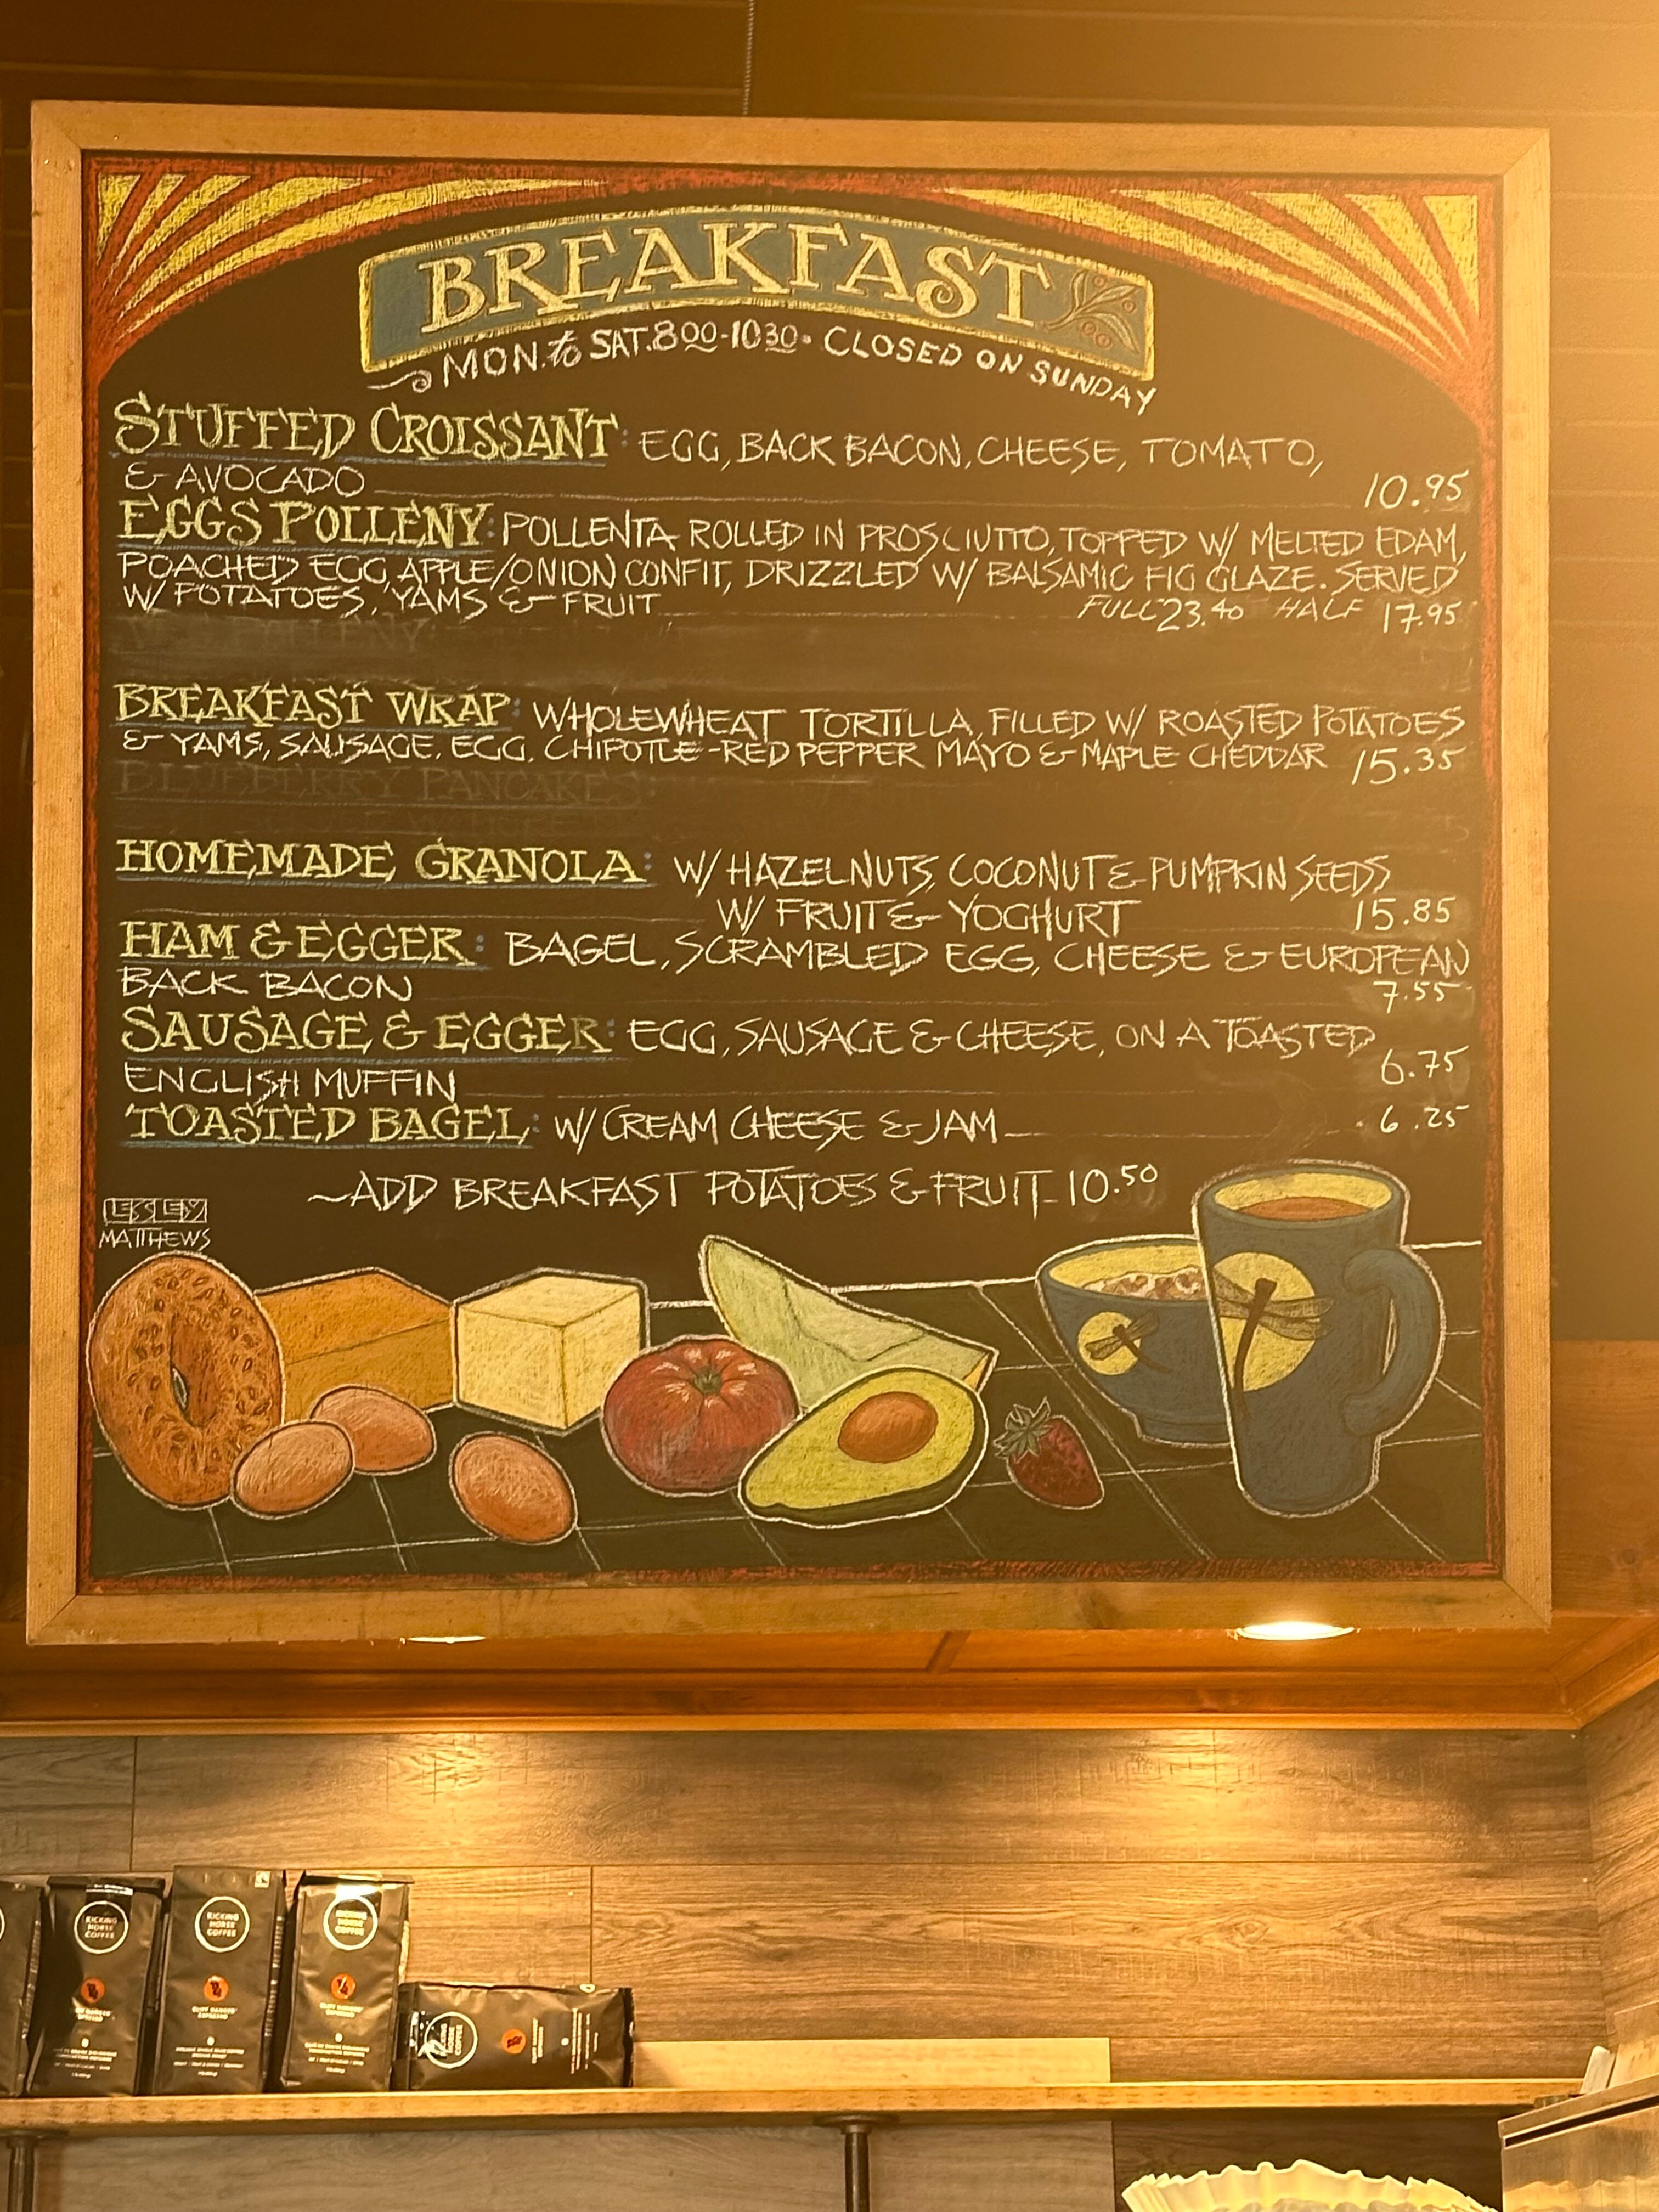 BREAKFAST
MON. to SAT. 800-1030 • CLOSED ON SUNDAY
STUFFED CROISSANT: EGG, BACK BACON, CHEESE, TOMATO,
& AVOCADO 10.95
EGGS POLLENY: POLLENTA ROLLED IN PROSCIUTTO, TOPPED W/ MELTED EDAM,
POACHED EGG, APPLE/ONION CONFIT, DRIZZLED W/ BALSAMIC FIG GLAZE. SERVED
W/ POTATOES, YAMS & FRUIT FULL 23.40 HALF 17.95
BREAKFAST WRAP: WHOLEWHEAT TORTILLA, FILLED W/ ROASTED POTATOES
& YAMS, SAUSAGE, EGG, CHIPOTLE-RED PEPPER MAYO & MAPLE CHEDDAR 15.35
BLUEBERRY PANCAKES:
HOMEMADE GRANOLA: W/ HAZELNUTS, COCONUT & PUMPKIN SEEDS
W/ FRUIT & YOGHURT 15.85
HAM & EGGER: BAGEL, SCRAMBLED EGG, CHEESE & EUROPEAN
BACK BACON 7.55
SAUSAGE & EGGER: EGG, SAUSAGE & CHEESE, ON A TOASTED
ENGLISH MUFFIN 6.75
TOASTED BAGEL: W/ CREAM CHEESE & JAM 6.25
~ADD BREAKFAST POTATOES & FRUIT - 10.50
LESLEY
MATTHEWS
KICKING
HORSE
COFFEE
KICKING
HORSE
COFFEE
KICKING
HORSE
COFFEE
KICKING
HORSE
COFFEE